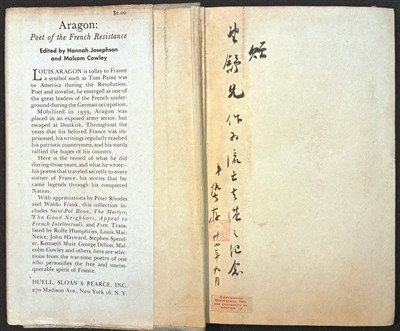 $2.00
Aragon:
Poet of the French Resistance
Edited by Hannah Josephson
and Malcolm Cowley
LOUIS ARAGON is today to France
a symbol such as Tom Paine was
to America during the Revolution.
Poet and novelist, he emerged as one of
the great leaders of the French under-
ground during the German occupation.
Mobilized in 1939, Aragon was
placed in an exposed army sector, but
escaped at Dunkirk. Throughout the
years that his beloved France was im-
prisoned, his writings regularly reached
his patriotic countrymen, and his words
rallied the hopes of his country.
Here is the record of what he did
during those years, and what he wrote—
his poems that traveled secretly to every
corner of France, his stories that be-
came legends through his conquered
Nation.
With appreciations by Peter Rhodes
and Waldo Frank, this collection in-
cludes Saint-Pol Roux, The Martyrs,
The Good Neighbors, Appeal to
French Intellectuals, and Free. Trans-
lated by Rolfe Humphries, Louis Mac-
Neice, John Hayward, Stephen Spend-
er, Kenneth Muir, George Dillon, Mal-
colm Cowley and others, here are selec-
tions from the war-time poetry of one
who personifies the free and uncon-
querable spirit of France.
DUELL, SLOAN & PEARCE, INC.
270 Madison Ave., New York 16, N. Y.
贈
望舒兄 作為流亡之紀念
年九月
DARTMOUTH
BOOKSTALL, INC.